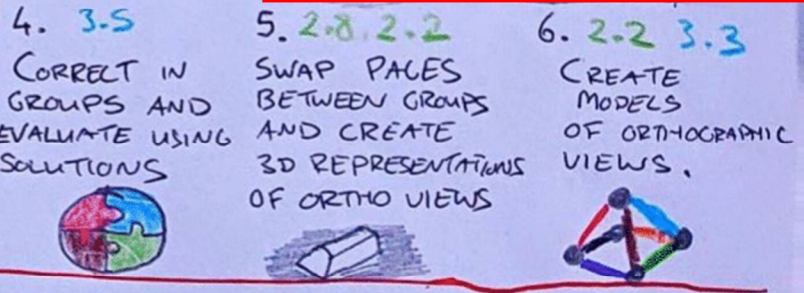 4. 3.5
CORRECT IN
GROUPS AND
EVALUATE USING
SOLUTIONS
5. 2.8, 2.2
SWAP PAGES
BETWEEN GROUPS
AND CREATE
3D REPRESENTATIONS
OF ORTHO VIEWS
6. 2.2 3.3
CREATE
MODELS
OF ORTHOGRAPHIC
VIEWS.